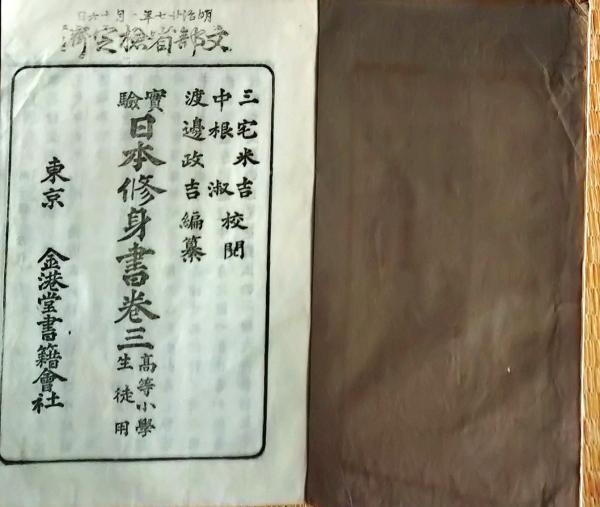 明治廿七年一月十六日
文部省検定済
三宅米吉
中根淑校閲
渡邊政吉編纂
實驗日本修身書巻三高等小學生徒用
東京 金港堂書籍會社